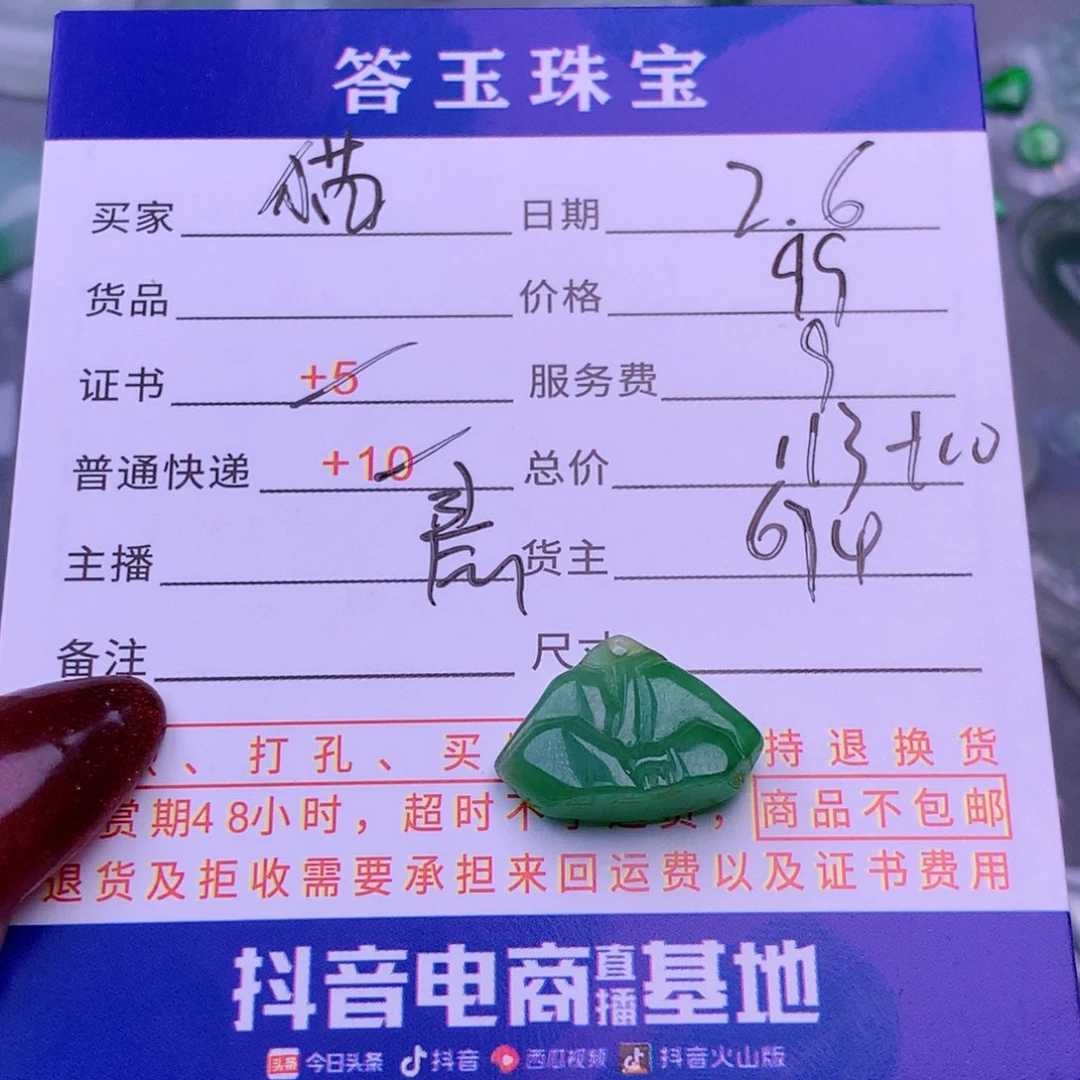 答玉珠宝
买家 猫 日期 2.6
货品 价格 99
证书 +5 服务费 9
普通快递 +10 总价 113+10
主播 货主 674
备注 尺寸
、打孔、买 持退换货
赏期48小时，超时不 ，商品不包邮
退货及拒收需要承担来回运费以及证书费用
抖音电商直播基地
头条 今日头条 抖音 西瓜视频 抖音火山版